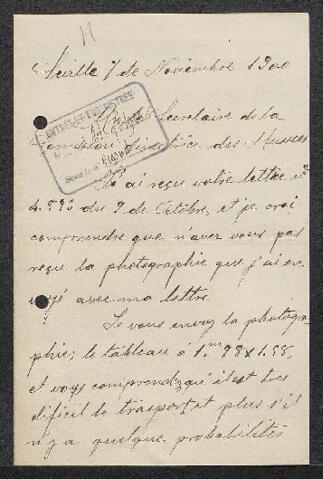 11
Seville 7 de Noviembre 1900
ENTRÉE ET ENREGISTRÉE
Secretaire de la
Comission directrice des Museés
J'ai reçu votre lettre nº
4.893 du 9 de Octobre, et je croi
comprendre que n'aver vous pas
reçu la photographie que j'ai en
voyé avec ma lettre.
Je vous envoy la photogra-
phie; le tableau á 1.m 98 x 1.55,
et vous comprendez qu'il est tres
dificil le trasport, et plus s'il
n'y a quelque probabilités